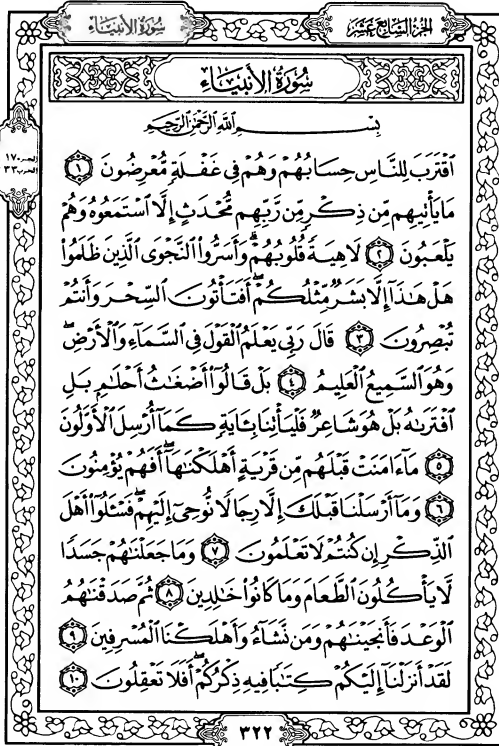 سُورَةُ الأَنبِيَاء
الجُزءُ السَّابِع عَشَر
الجزء ١٧
الحزب ٣٣
سُورَةُ الأَنبِيَاء
بِسْمِ اللَّهِ الرَّحْمَٰنِ الرَّحِيمِ
ٱقْتَرَبَ لِلنَّاسِ حِسَابُهُمْ وَهُمْ فِى غَفْلَةٍ مُّعْرِضُونَ ١
مَا يَأْتِيهِم مِّن ذِكْرٍ مِّن رَّبِّهِم مُّحْدَثٍ إِلَّا ٱسْتَمَعُوهُ وَهُمْ
يَلْعَبُونَ ٢ لَاهِيَةً قُلُوبُهُمْ ۗ وَأَسَرُّوا۟ ٱلنَّجْوَى ٱلَّذِينَ ظَلَمُوا۟
هَلْ هَٰذَآ إِلَّا بَشَرٌ مِّثْلُكُمْ ۖ أَفَتَأْتُونَ ٱلسِّحْرَ وَأَنتُمْ
تُبْصِرُونَ ٣ قَالَ رَبِّى يَعْلَمُ ٱلْقَوْلَ فِى ٱلسَّمَآءِ وَٱلْأَرْضِ ۖ
وَهُوَ ٱلسَّمِيعُ ٱلْعَلِيمُ ٤ بَلْ قَالُوٓا۟ أَضْغَٰثُ أَحْلَٰمٍۭ بَلِ
ٱفْتَرَىٰهُ بَلْ هُوَ شَاعِرٌ فَلْيَأْتِنَا بِـَٔايَةٍ كَمَآ أُرْسِلَ ٱلْأَوَّلُونَ
٥ مَآ ءَامَنَتْ قَبْلَهُم مِّن قَرْيَةٍ أَهْلَكْنَٰهَآ ۖ أَفَهُمْ يُؤْمِنُونَ
٦ وَمَآ أَرْسَلْنَا قَبْلَكَ إِلَّا رِجَالًا نُّوحِىٓ إِلَيْهِمْ ۖ فَسْـَٔلُوٓا۟ أَهْلَ
ٱلذِّكْرِ إِن كُنتُمْ لَا تَعْلَمُونَ ٧ وَمَا جَعَلْنَٰهُمْ جَسَدًا
لَّا يَأْكُلُونَ ٱلطَّعَامَ وَمَا كَانُوا۟ خَٰلِدِينَ ٨ ثُمَّ صَدَقْنَٰهُمُ
ٱلْوَعْدَ فَأَنجَيْنَٰهُمْ وَمَن نَّشَآءُ وَأَهْلَكْنَا ٱلْمُسْرِفِينَ ٩
لَقَدْ أَنزَلْنَآ إِلَيْكُمْ كِتَٰبًا فِيهِ ذِكْرُكُمْ ۖ أَفَلَا تَعْقِلُونَ ١٠
٣٢٢